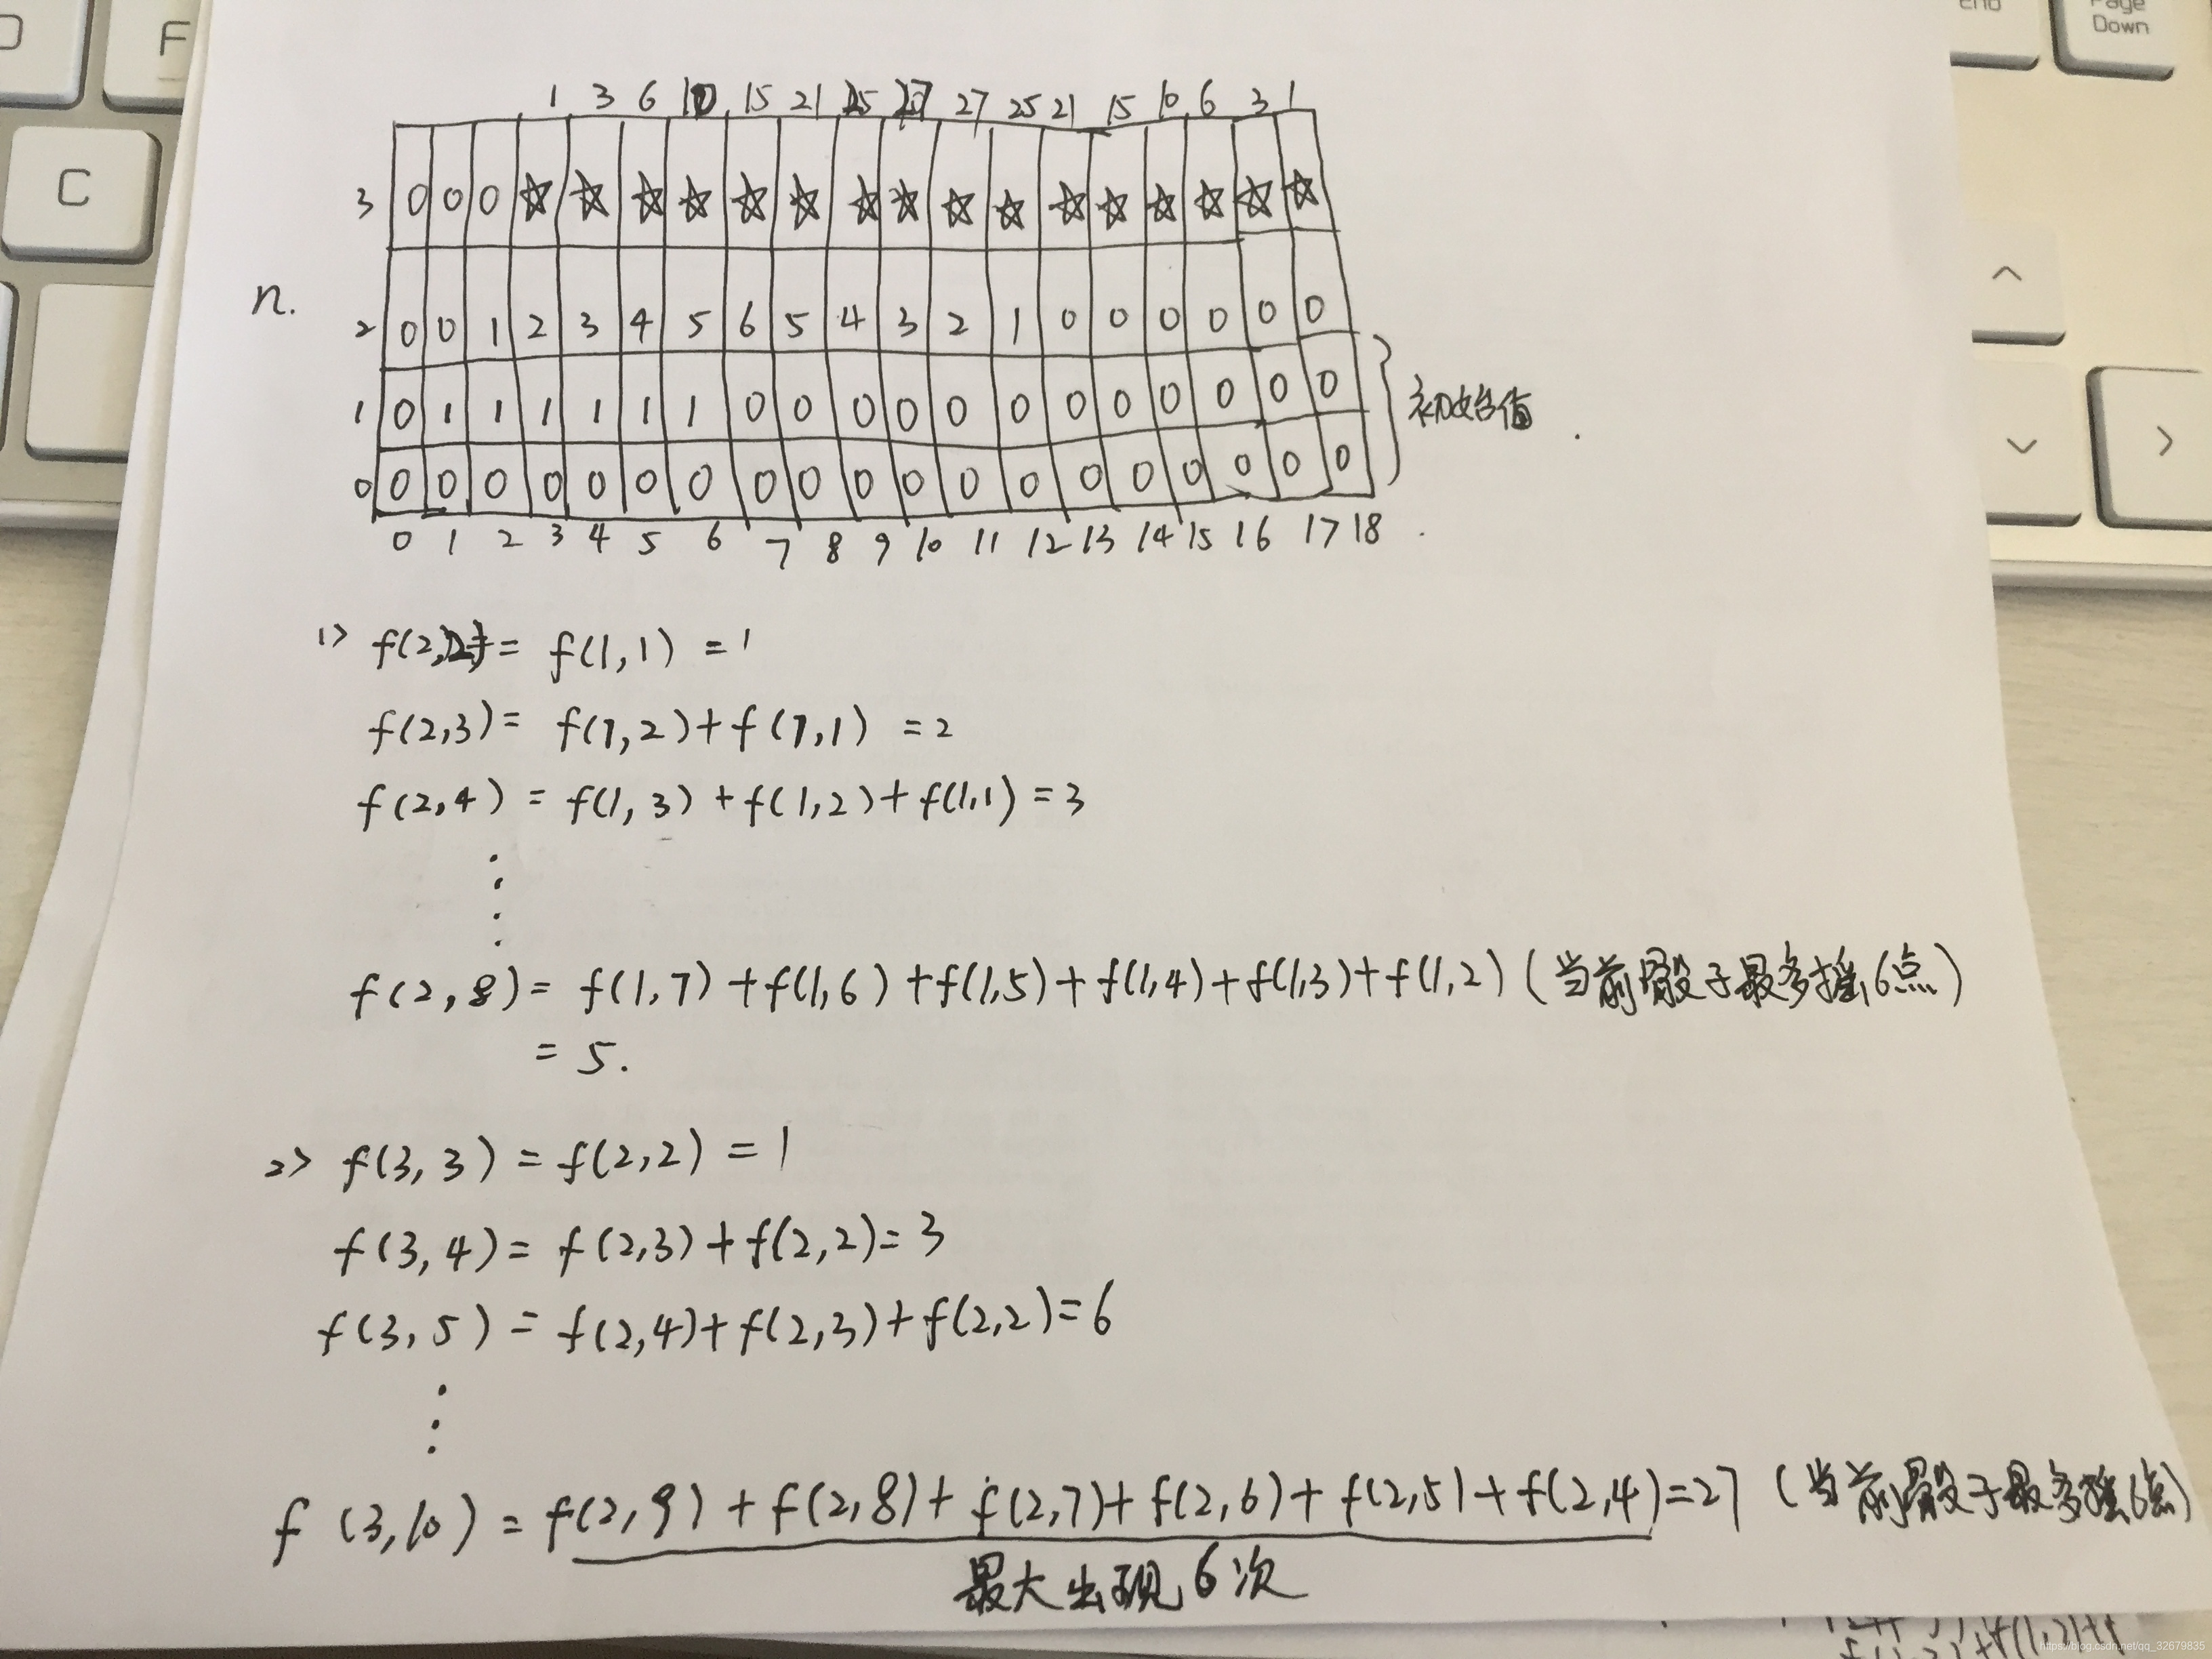 1 3 6 10 15 21 25 27 27 25 21 15 10 6 3 1
3 0 0 0 ☆ ☆ ☆ ☆ ☆ ☆ ☆ ☆ ☆ ☆ ☆ ☆ ☆ ☆ ☆ ☆
n. 2 0 0 1 2 3 4 5 6 5 4 3 2 1 0 0 0 0 0 0
1 0 1 1 1 1 1 1 0 0 0 0 0 0 0 0 0 0 0 0
初始值
0 0 0 0 0 0 0 0 0 0 0 0 0 0 0 0 0 0 0 0
0 1 2 3 4 5 6 7 8 9 10 11 12 13 14 15 16 17 18
1> f(2,2) = f(1,1) = 1
f(2,3) = f(1,2) + f(1,1) = 2
f(2,4) = f(1,3) + f(1,2) + f(1,1) = 3
f(2,8) = f(1,7) + f(1,6) + f(1,5) + f(1,4) + f(1,3) + f(1,2) (当前骰子最多摇6点)
= 5.
2> f(3,3) = f(2,2) = 1
f(3,4) = f(2,3) + f(2,2) = 3
f(3,5) = f(2,4) + f(2,3) + f(2,2) = 6
f(3,10) = f(2,9) + f(2,8) + f(2,7) + f(2,6) + f(2,5) + f(2,4) = 27 (当前骰子最多摇6点)
最大出现6次
C
F
End
Page
Down
https://blog.csdn.net/qq_32679835